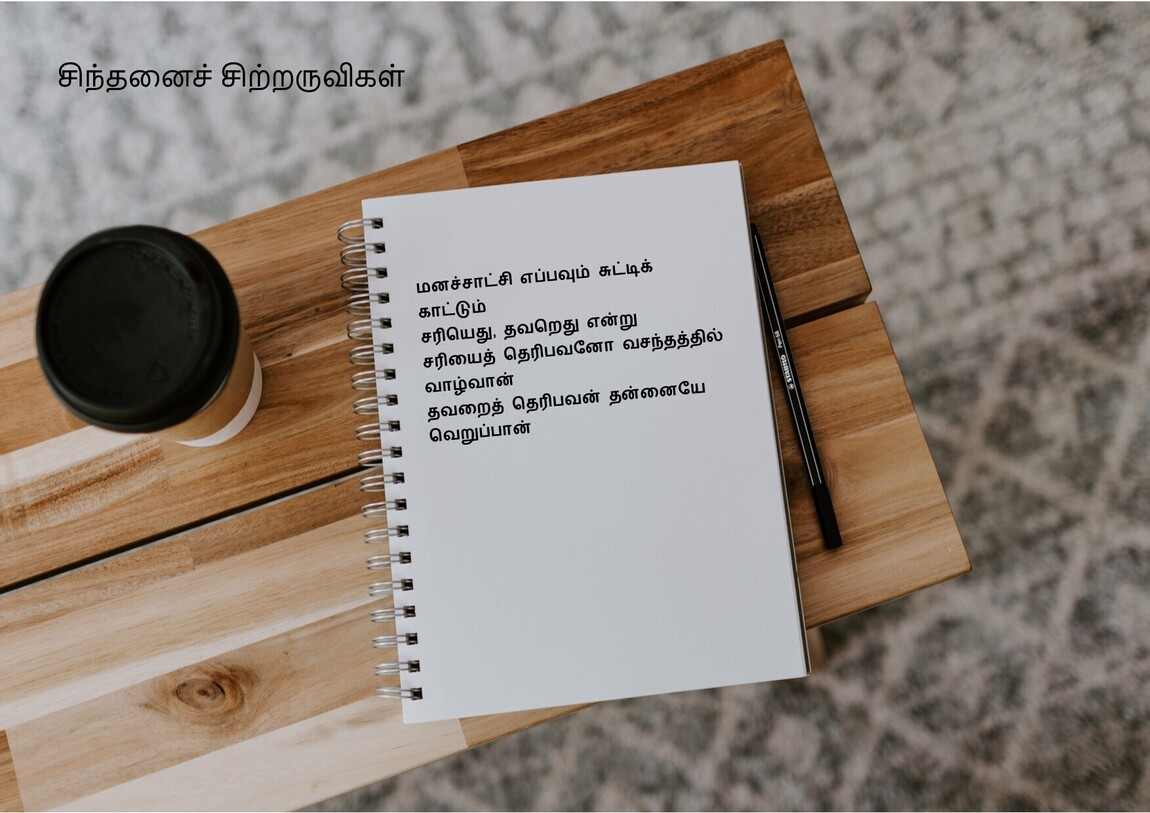 சிந்தனைச் சிற்றருவிகள்
மனச்சாட்சி எப்பவும் சுட்டிக்
காட்டும்
சரியெது, தவறெது என்று
சரியைத் தெரிபவனோ வசந்தத்தில்
வாழ்வான்
தவறைத் தெரிபவன் தன்னையே
வெறுப்பான்
STABILO